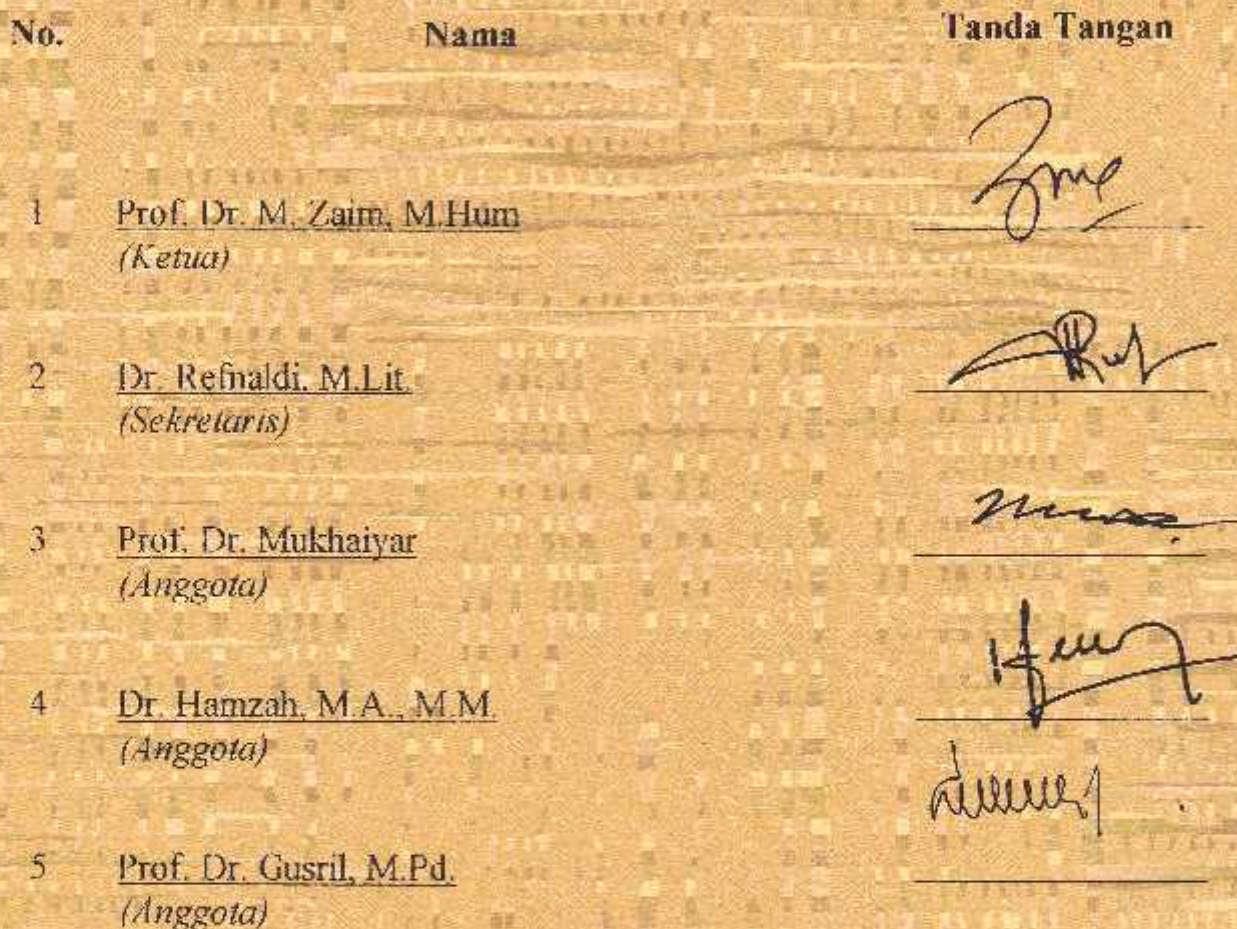 No. Nama Tanda Tangan
1 Prof. Dr. M. Zaim, M.Hum
(Ketua)
2 Dr. Refnaldi, M.Lit.
(Sekretaris)
3 Prof. Dr. Mukhaiyar
(Anggota)
4 Dr. Hamzah, M.A., M.M.
(Anggota)
5 Prof. Dr. Gusril, M.Pd.
(Anggota)